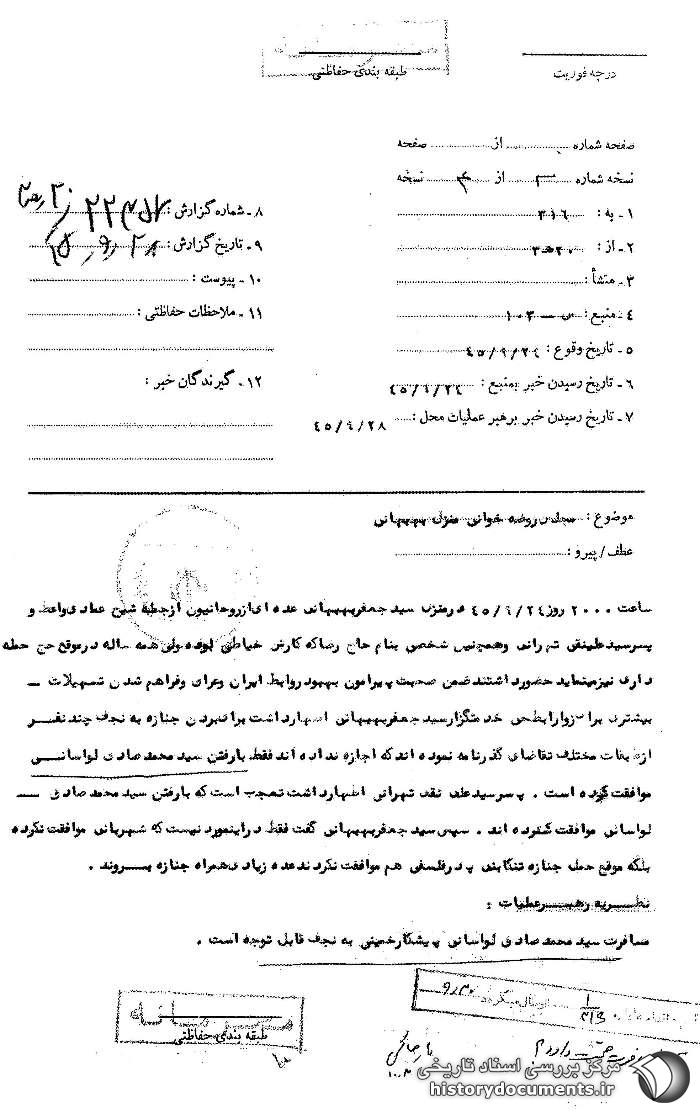 درجه فوریت
طبقه بندی حفاظتی
صفحه شماره از صفحه
نسخه شماره ۳ از ۴ نسخه
۱ - به : ۳۱۶
۲ - از : ۲۰ه۳
۳ - منشأ :
۴ - منبع : س — ۱۰۳
۵ - تاریخ وقوع : ۴۵/۹/۲۴
۶ - تاریخ رسیدن خبر بمنبع : ۴۵/۹/۲۴
۷ - تاریخ رسیدن خبر برهبر عملیات محل : ۴۵/۹/۲۸
۸ - شماره گزارش :
۹ - تاریخ گزارش :
۱۰ - پیوست :
۱۱ - ملاحظات حفاظتی :
۱۲ - گیرندگان خبر :
موضوع : مجلس روضه خوانی منزل بهبهانی
عطف / پیرو :
ساعت ۲۰۰۰ روز ۴۵/۹/۲۴ درمنزل سید جعفربهبهانی عده ای ازروحانیون ازجمله شیخ عمادی واعظ و
پسرسیدعلینقی تهرانی وهمچنین شخصی بنام حاج رضاکه کارش خیاطی بوده ولی همه ساله درموقع حج حمله
داری نیزمینماید حضورداشتندضمن صحبت پیرامون بهبودروابط ایران وعراق وفراهم شدن تسهیلات —
بیشتری برای زوارابطحی خدمتگزارسید جعفربهبهانی اظهارداشت برای بردن جنازه به نجف چندنفر
ازطبقات مختلف تقاضای گذرنامه نموده اندکه اجازه نداده اند فقط بارفتن سید محمدصادق لواسانی
موافقت کرده است . پسرسیدعلی نقی تهرانی اظهارداشت تعجب است که بارفتن سید محمدصادق —
لواسانی موافقت کرده اند . سپس سید جعفربهبهانی گفت فقط دراینمورد نیست که شهربانی موافقت نکرده
بلکه موقع حمل جنازه تنکابنی پدرفلسفی هم موافقت نکردندعده زیادی همراه جنازه بروند .
نظریه رهبرعملیات :
مسافرت سید محمدصادق لواسانی پیشکارخمینی به نجف قابل توجه است .
محرمانه
طبقه بندی حفاظتی
مرکز بررسی اسناد تاریخی
historydocuments.ir